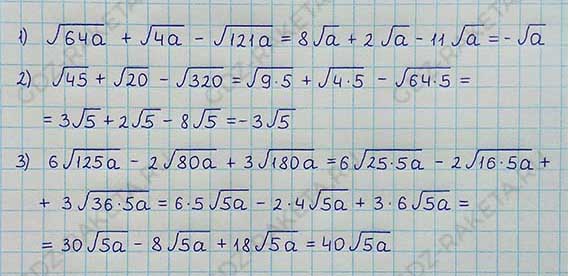 1) √64a + √4a - √121a = 8√a + 2√a - 11√a = -√a
2) √45 + √20 - √320 = √9·5 + √4·5 - √64·5 =
= 3√5 + 2√5 - 8√5 = -3√5
3) 6√125a - 2√80a + 3√180a = 6√25·5a - 2√16·5a +
+ 3√36·5a = 6·5√5a - 2·4√5a + 3·6√5a =
= 30√5a - 8√5a + 18√5a = 40√5a
GDZ-RAKETA.RU